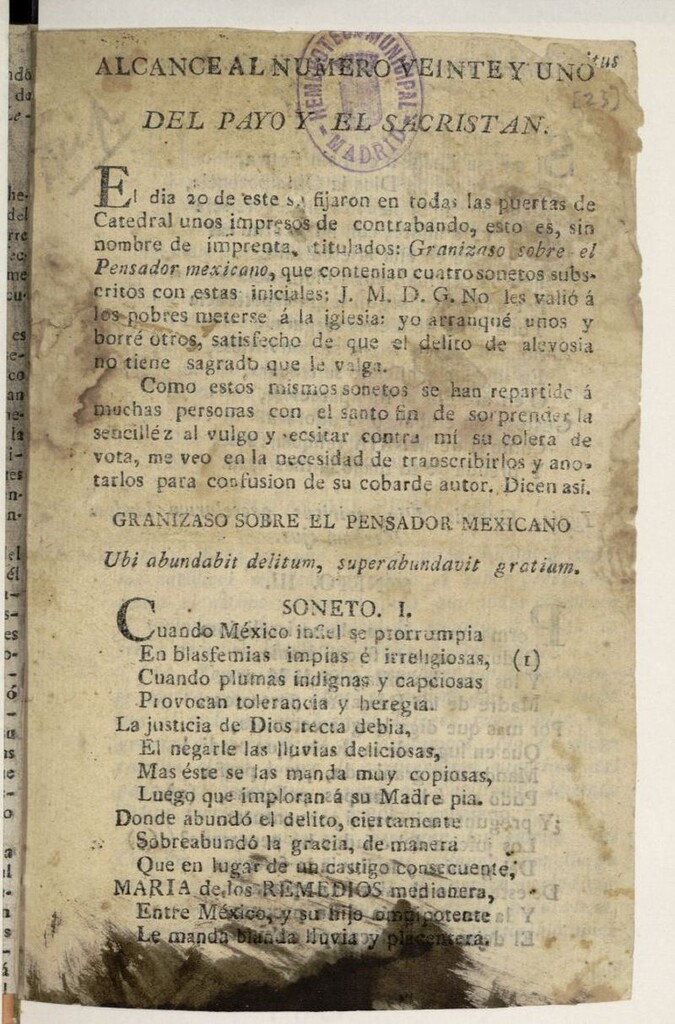 ALCANCE AL NUMERO VEINTE Y UNO
[23]
DEL PAYO Y EL SACRISTAN.
HEMEROTECA MUNICIPAL
MADRID
El dia 20 de este se fijaron en todas las puertas de
Catedral unos impresos de contrabando, esto es, sin
nombre de imprenta, titulados: Granizaso sobre el
Pensador mexicano, que contenian cuatro sonetos subs-
critos con estas iniciales: J. M. D. G. No les valió á
los pobres meterse á la iglesia: yo arranqué unos y
borré otros, satisfecho de que el delito de alevosia
no tiene sagrado que le valga.
Como estos mismos sonetos se han repartido á
muchas personas con el santo fin de sorprender la
sencilléz al vulgo y ecsitar contra mí su colera de
vota, me veo en la necesidad de transcribirlos y ano-
tarlos para confusion de su cobarde autor. Dicen asi.
GRANIZASO SOBRE EL PENSADOR MEXICANO
Ubi abundabit delitum, superabundavit gratiam.
SONETO. I.
Cuando México infiel se prorrumpia
En blasfemias impias é irreligiosas, (1)
Cuando plumas indignas y capciosas
Provocan tolerancia y heregia.
La justicia de Dios recta debia,
El negarle las lluvias deliciosas,
Mas éste se las manda muy copiosas,
Luego que imploran á su Madre pia.
Donde abundó el delito, ciertamente
Sobreabundó la gracia, de manera
Que en lugar de un castigo consecuente,
MARIA de los REMEDIOS medianera,
Entre México, y su hijo omnipotente
Le manda blanda lluvia y placentera.